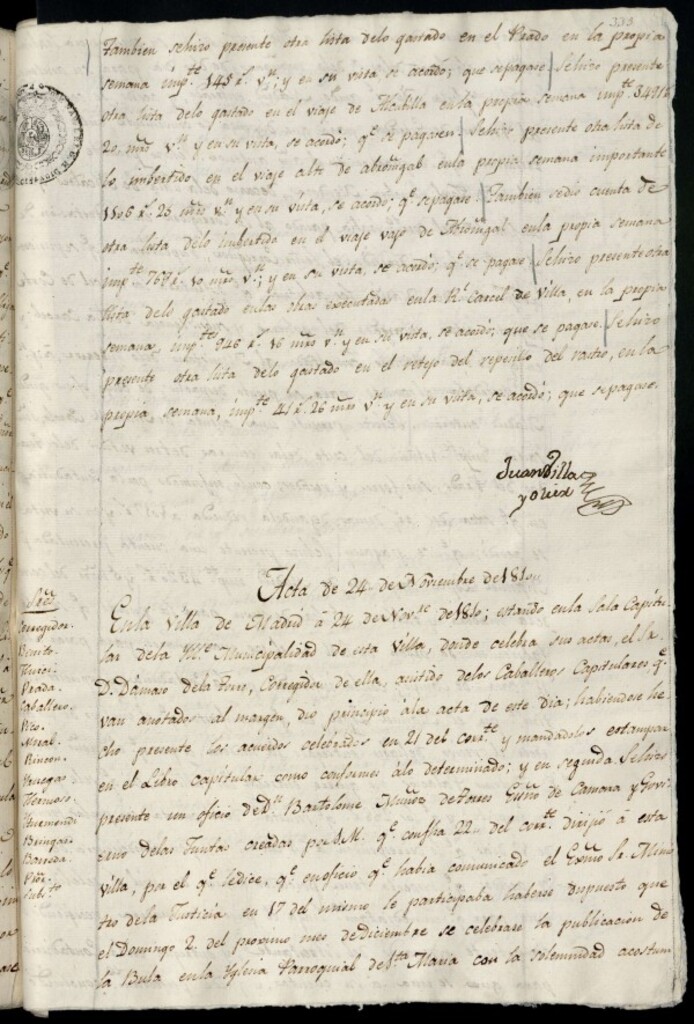 333
Tambien sehizo presente otra lista delo gastado en el Prado en la propia
semana impte 145 rs vn; y en su vista se acordó; que sepagare. Sehizo presente
otra lista delo gastado en el viaje de Alcubilla en la propia semana impte
20 mrs vn y en su vista, se acordó; qe se pagaren. Sehizo presente otra lista de
lo imbertido en el viaje alto de abroñigal enla propia semana importante
1506 rs 25 mrs vn y en su vista, se acordó; qe sepagare. Tambien sedió cuenta de
otra lista delo imbertido en el viaje vajo de Abroñigal enla propia semana
impte 767 rs 10 mrs vn; y en su vista, se acordó; qe se pagare. Sehizo presente otra
lista delo gastado enlas obras executadas enla Rl Carcel de Villa, en la propia
semana, impte 946 rs 16 mrs vn y en su vista, se acordó; que se pagare. Sehizo
presente otra lista delo gastado en el retejo del repesillo del rastro, en la
propia semana, impte 41 rs 26 mrs vn y en su vista, se acordó; que sepagare.
Juan Villa
y Olier
Acta de 24 de Noviembre de 1810
Sres
Corregidor.
Benito.
Prada.
Caballero.
Pico.
Rincon.
Hermoso.
Barreda.
Enla Villa de Madrid á 24 de Novre de 1810; estando enla Sala Capitu
lar dela Ille Municipalidad de esta Villa, donde celebra sus actas, el Sr.
D. Dámaso dela Torre, Corregidor de ella, asistido delos Caballeros Capitulares qe
van anotados al margen, dió principio ála acta de este dia; habiendose he
cho presente los acuerdos celebrados en 21 del corrte y mandadolos estampar
en el Libro capitular como conformes álo determinado; y en seguida Sehizo
presente un oficio de Dn Bartolome Muñoz de Torres Essno de Camara y Govi
erno delas Juntas creadas por S.M. qe con fha 22 del corrte dirijió á esta
villa, por el qe sedice, qe en oficio qe habia comunicado el Exmo Sr. Minis
tro dela Justicia en 17 del mismo le participaba haberse dispuesto que
el Domingo 2 del proximo mes de Diciembre se celebrase la publicación de
la Bula en la Yglesia Parroquial de Sta Maria con la solemnidad acostum